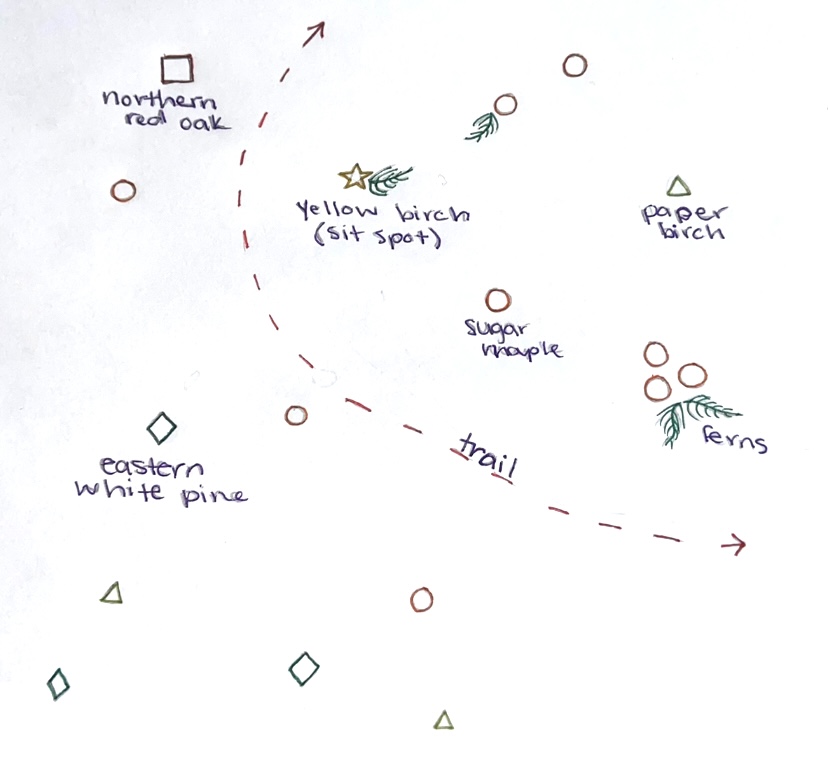 northern
red oak
yellow birch
(sit spot)
paper
birch
sugar
maple
ferns
trail
eastern
white pine